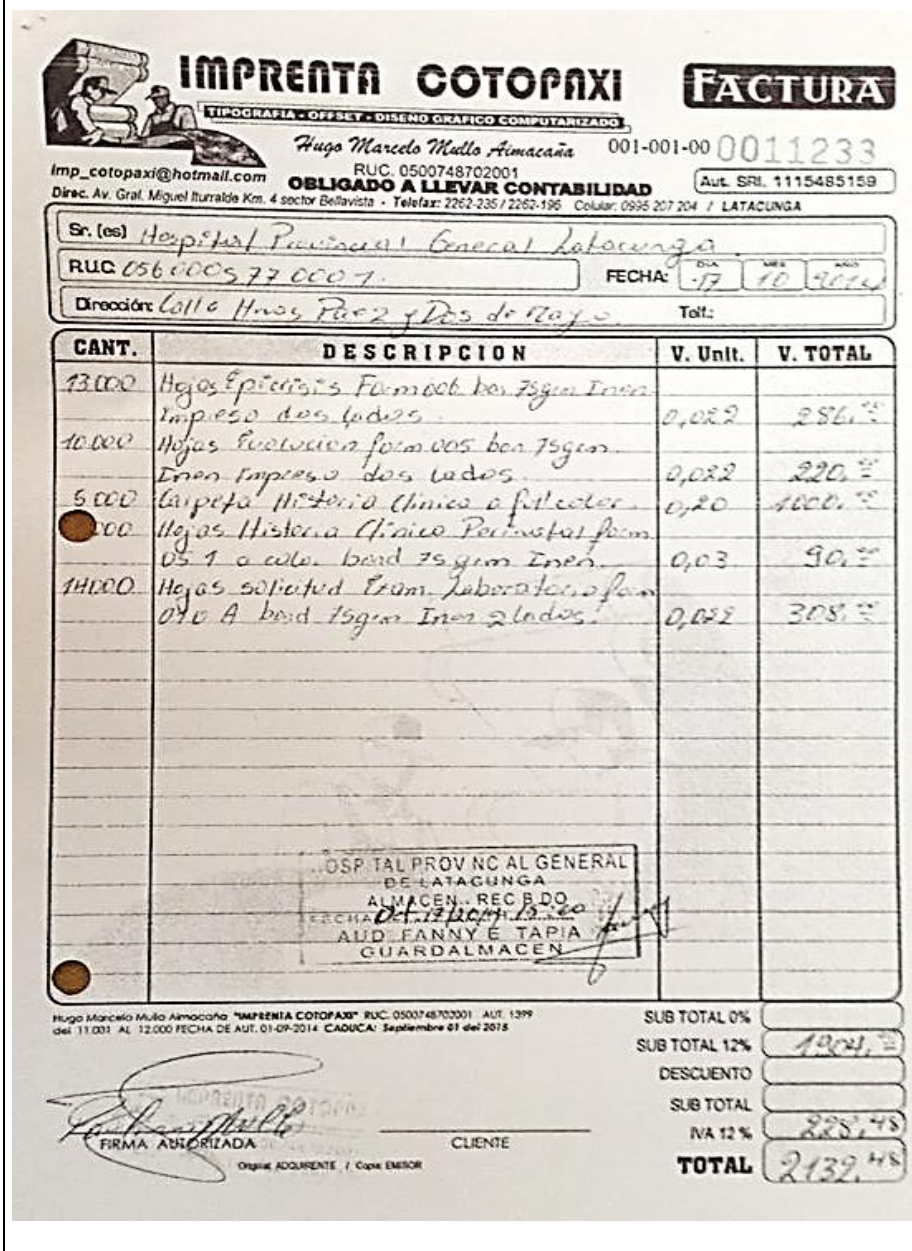 IMPRENTA COTOPAXI
FACTURA
TIPOGRAFIA - OFFSET - DISEÑO GRAFICO COMPUTARIZADO
Hugo Marcelo Mullo Aimacaña
001-001-00 0011233
imp_cotopaxi@hotmail.com
RUC. 0500748702001
OBLIGADO A LLEVAR CONTABILIDAD
Aut. SRI. 1115485159
Direc. Av. Gral. Miguel Iturralde Km. 4 sector Bellavista - Telefax: 2262-235 / 2262-196 Celular: 0995 207 204 / LATACUNGA
Sr. (es) Hospital Provincial General Latacunga
RUC 0560005770001 FECHA: DIA 17 MES 10 AÑO 2014
Dirección: Calle Hnos Páez y Dos de Mayo. Telf.:
CANT. DESCRIPCION V. Unit. V. TOTAL
13.000 Hojas Epicrisis Form 006 bon 75grm Inen
Impreso dos lados. 0,022 286.00
10.000 Hojas Evolucion form 005 bon 75grm
Inen Impreso dos lados. 0,022 220.00
5.000 Carpeta Historia Clinica a full color. 0,20 1000.00
000 Hojas Historia Clinica Perinatal form
051 a colo. bond 75grm Inen. 0,03 90.00
14.000 Hojas solicitud Exam. Laboratorio form
010 A bond 75grm Inen 2 lados. 0,022 308.00
OSP TAL PROV NC AL GENERAL
DE LATACUNGA
ALMACEN - REC B DO
FECHA Oct. 17/2014
AUD FANNY E TAPIA
GUARDALMACEN
Hugo Marcelo Mullo Aimacaña "IMPRENTA COTOPAXI" RUC. 0500748702001 AUT. 1399
del 11.001 AL 12.000 FECHA DE AUT. 01-09-2014 CADUCA: Septiembre 01 del 2015
SUB TOTAL 0%
SUB TOTAL 12% 1904.00
DESCUENTO
SUB TOTAL
IVA 12% 228.48
TOTAL 2132.48
IMPRENTA COTOPA
FIRMA AUTORIZADA
CLIENTE
Original: ADQUIRENTE / Copia: EMISOR